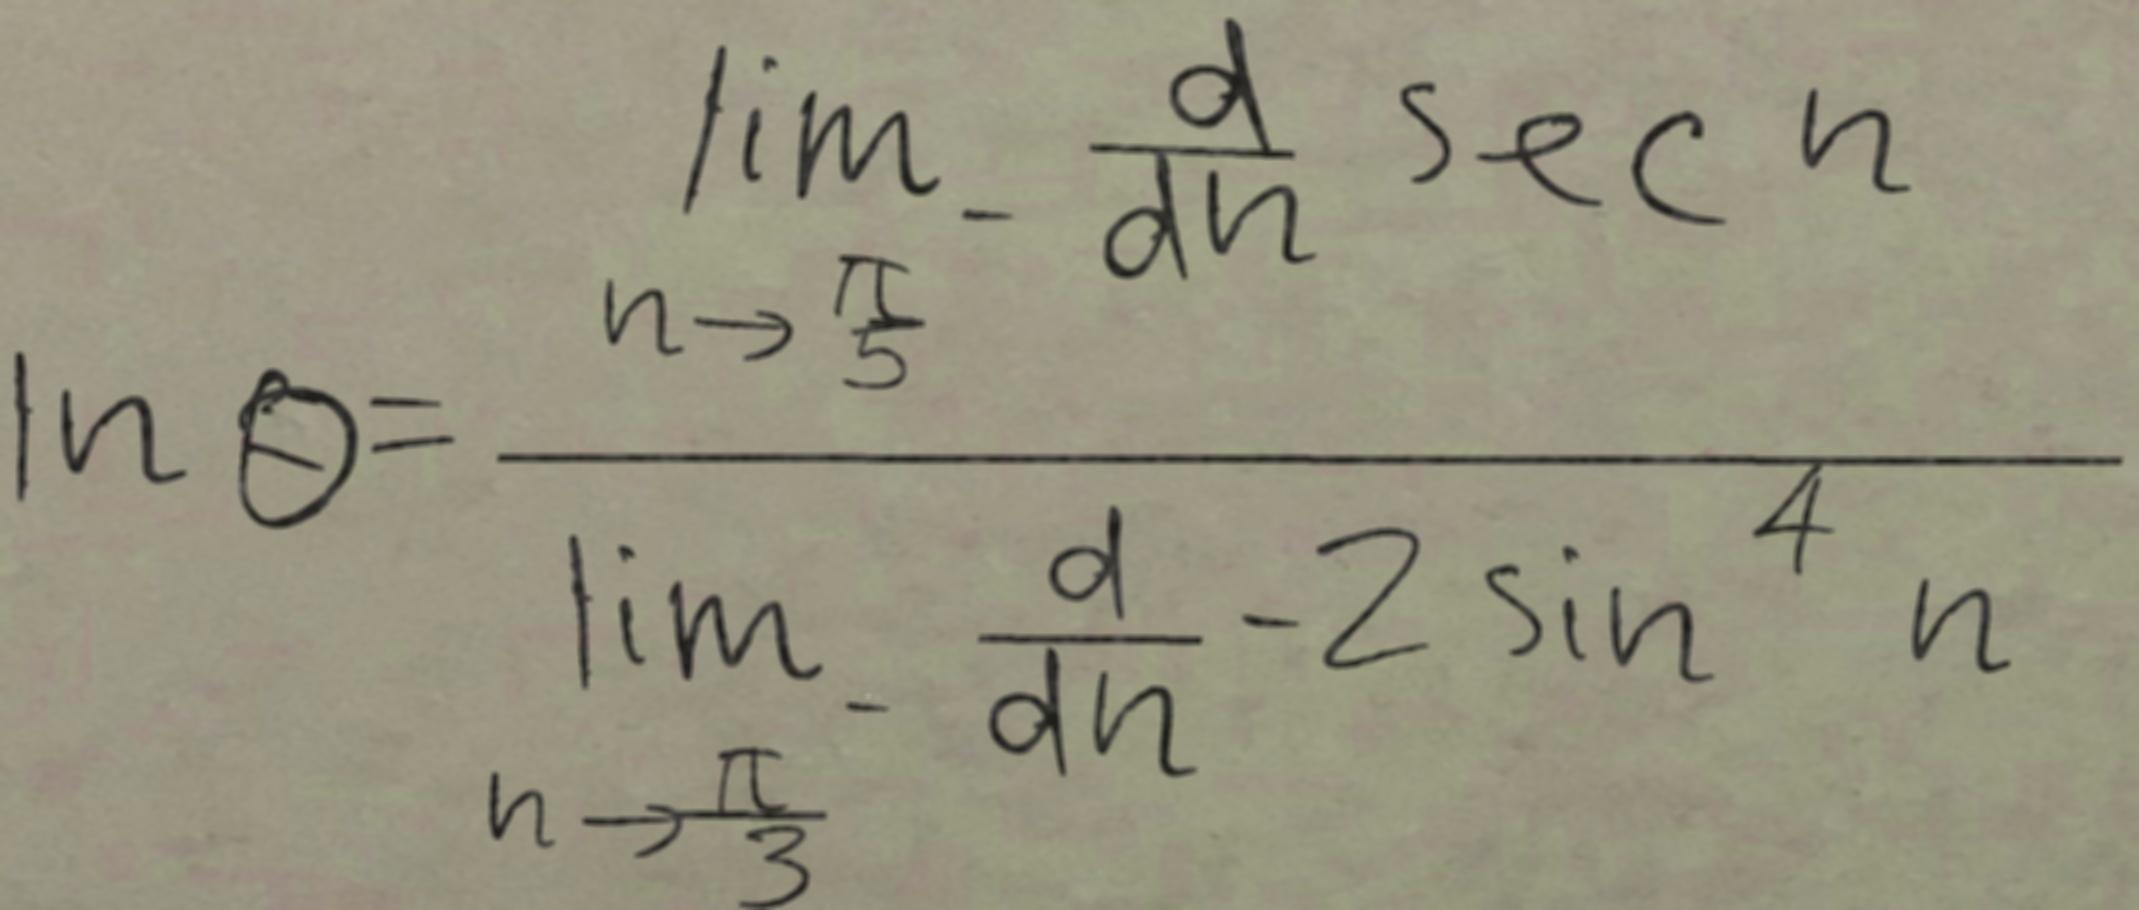 ln θ = \frac{\lim_{n \to \frac{\pi}{5}} - \frac{d}{dn} \sec n}{\lim_{n \to \frac{\pi}{3}} - \frac{d}{dn} - 2 \sin^4 n}